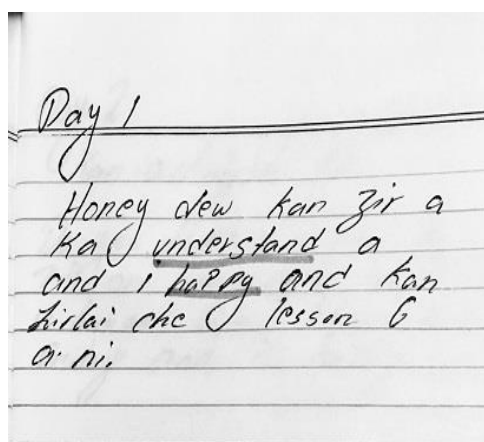 Day 1
Honey dew kan zir a
Ka understand a
and i happy and kan
zirlai che lesson 6
a ni.